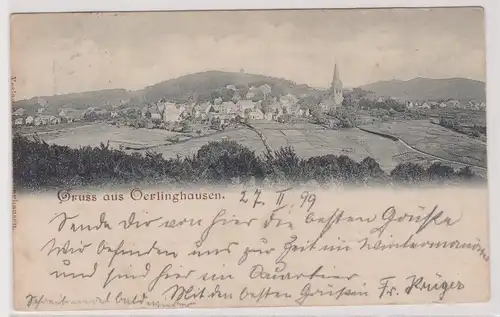 Gruss aus Oerlinghausen. 27. II 99
Sende dir von hier die besten Grüße
Wir befinden uns zur Zeit im Wintermanöver
und sind hier in Quartier
Schreib mal bald wieder Mit den besten Grüßen Fr. Krüger